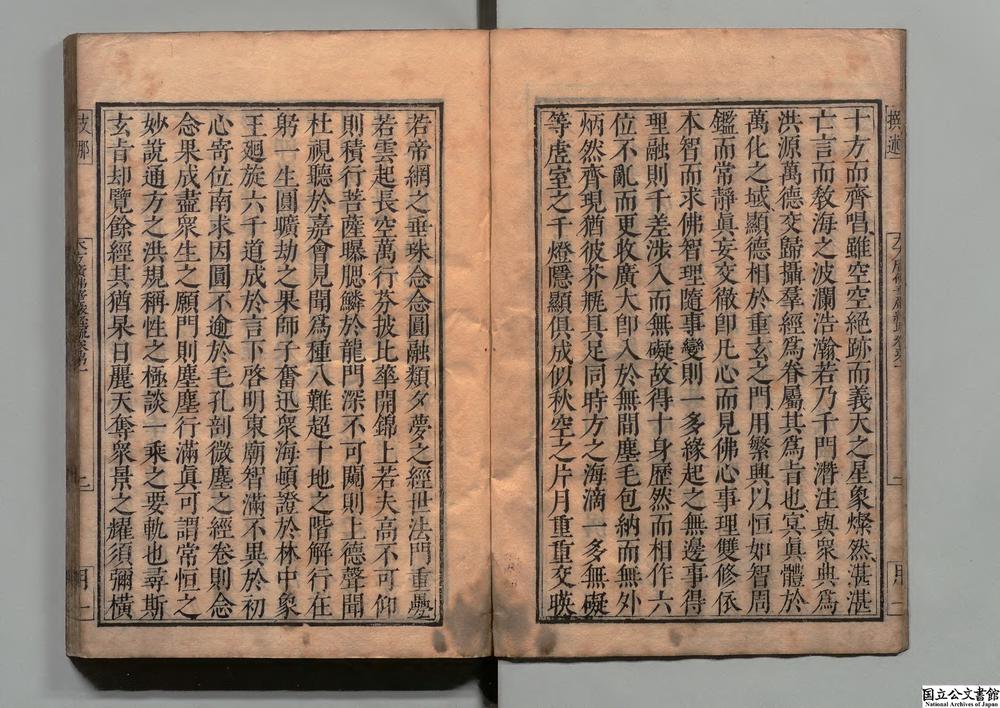 十方而齊唱雖空空絶跡而義天之星象燦然湛湛
亡言而敎海之波瀾浩瀚若乃千門潛注與衆典爲
洪源萬德交歸攝羣經爲眷屬其爲旨也冥眞體於
萬化之域顯德相於重玄之門用繁興以恒如智周
鑑而常靜眞妄交徹卽凡心而見佛心事理雙修依
本智而求佛智理隨事變則一多緣起之無邊事得
理融則千差涉入而無礙故得十身歷然而相作六
位不亂而更收廣大卽入於無間塵毛包納而無外
炳然齊現猶彼芥甁具足同時方之海滴一多無礙
等虛室之千燈隱顯俱成似秋空之片月重重交映
若帝網之垂珠念念圓融類夕夢之經世法門重疊
若雲起長空萬行芬披比華開錦上若夫高不可仰
則積行菩薩曝腮鱗於龍門深不可闚則上德聲聞
杜視聽於嘉會見聞爲種八難超十地之階解行在
躬一生圓曠劫之果師子奮迅衆海頓證於林中象
王廻旋六千道成於言下啓明東廟智滿不異於初
心寄位南求因圓不逾於毛孔剖微塵之經卷則念
念果成盡衆生之願門則塵塵行滿眞可謂常恒之
妙說通方之洪規稱性之極談一乘之要軌也尋斯
玄旨却覽餘經其猶杲日麗天奪衆景之耀須彌橫
国立公文書館
National Archives of Japan